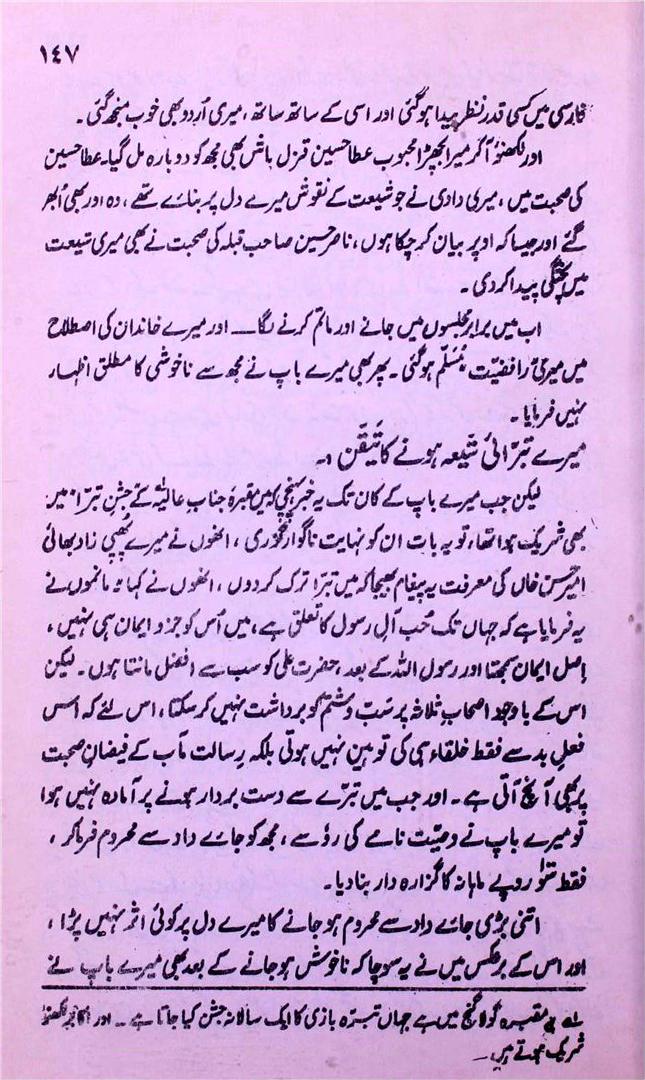 ۱۴۷
فارسی میں کسی قدر نظر پیدا ہوگئی اور اسی کے ساتھ ساتھ، میری اُردو بھی خوب منجھ گئی۔
اور لکھنؤ آ کر میرا بچھڑا محبوب عطا حسین قزل باش بھی مجھ کو دوبارہ مل گیا۔ عطا حسین
کی صحبت میں، میری دادی نے جو شیعت کے نقوش میرے دل پر بنائے تھے، وہ اور بھی اُبھر
گئے اور جیسا کہ اوپر بیان کر چکا ہوں، ناصر حسین صاحب قبلہ کی صحبت نے بھی میری شیعت
میں پختگی پیدا کر دی۔
اب میں برابر مجلسوں میں جانے اور ماتم کرنے لگا — اور میرے خاندان کی اصطلاح
میں میری رافضیّت مُسَلّم ہوگئی۔ پھر بھی میرے باپ نے مجھ سے ناخوشی کا مطلق اظہار
نہیں فرمایا۔
میرے تبرّائی شیعہ ہونے کا تَیَقّن ۔
لیکن جب میرے باپ کے کان تک یہ خبر پہنچی کہ میں مقبرۂ جناب عالیہ کے جشنِ تبرّا میں
بھی شریک ہوا تھا، تو یہ بات ان کو نہایت ناگوار گزری، انھوں نے میرے پھپی زاد بھائی
امیر حسن خاں کی معرفت یہ پیغام بھیجا کہ میں تبرّا ترک کر دوں، انھوں نے کہا نہ مانموں نے
یہ فرمایا ہے کہ جہاں تک حُبِ آلِ رسول کا تعلق ہے، میں اُس کو جزوِ ایمان ہی نہیں،
اصل ایمان سمجھتا اور رسول اللہ کے بعد، حضرت علی کو سب سے افضل مانتا ہوں۔ لیکن
اس کے باوجود اصحابِ ثلاثہ پر سبّ و شتم کو برداشت نہیں کر سکتا، اس لئے کہ اس
فعلِ بد سے فقط خلفاء ہی کی توہین نہیں ہوتی بلکہ رسالت مآب کے فیضانِ صحبت
پر بھی آنچ آتی ہے۔ اور جب میں تبرّے سے دست بردار ہونے پر آمادہ نہیں ہوا
تو میرے باپ نے وصیّت نامے کی رُو سے، مجھ کو جائے داد سے محروم فرما کر،
فقط سَو روپے ماہانہ کا گزارہ دار بنا دیا۔
اتنی بڑی جائے داد سے محروم ہو جانے کا میرے دل پر کوئی اثر نہیں پڑا،
اور اس کے برعکس میں نے یہ سوچا کہ ناخوش ہو جانے کے بعد بھی میرے باپ نے
مقبرہ گولا گنج میں ہے جہاں تبرّہ بازی کا ایک سالانہ جشن کیا جاتا ہے۔ اور لکھنؤ
شریک ہوتے ہیں۔